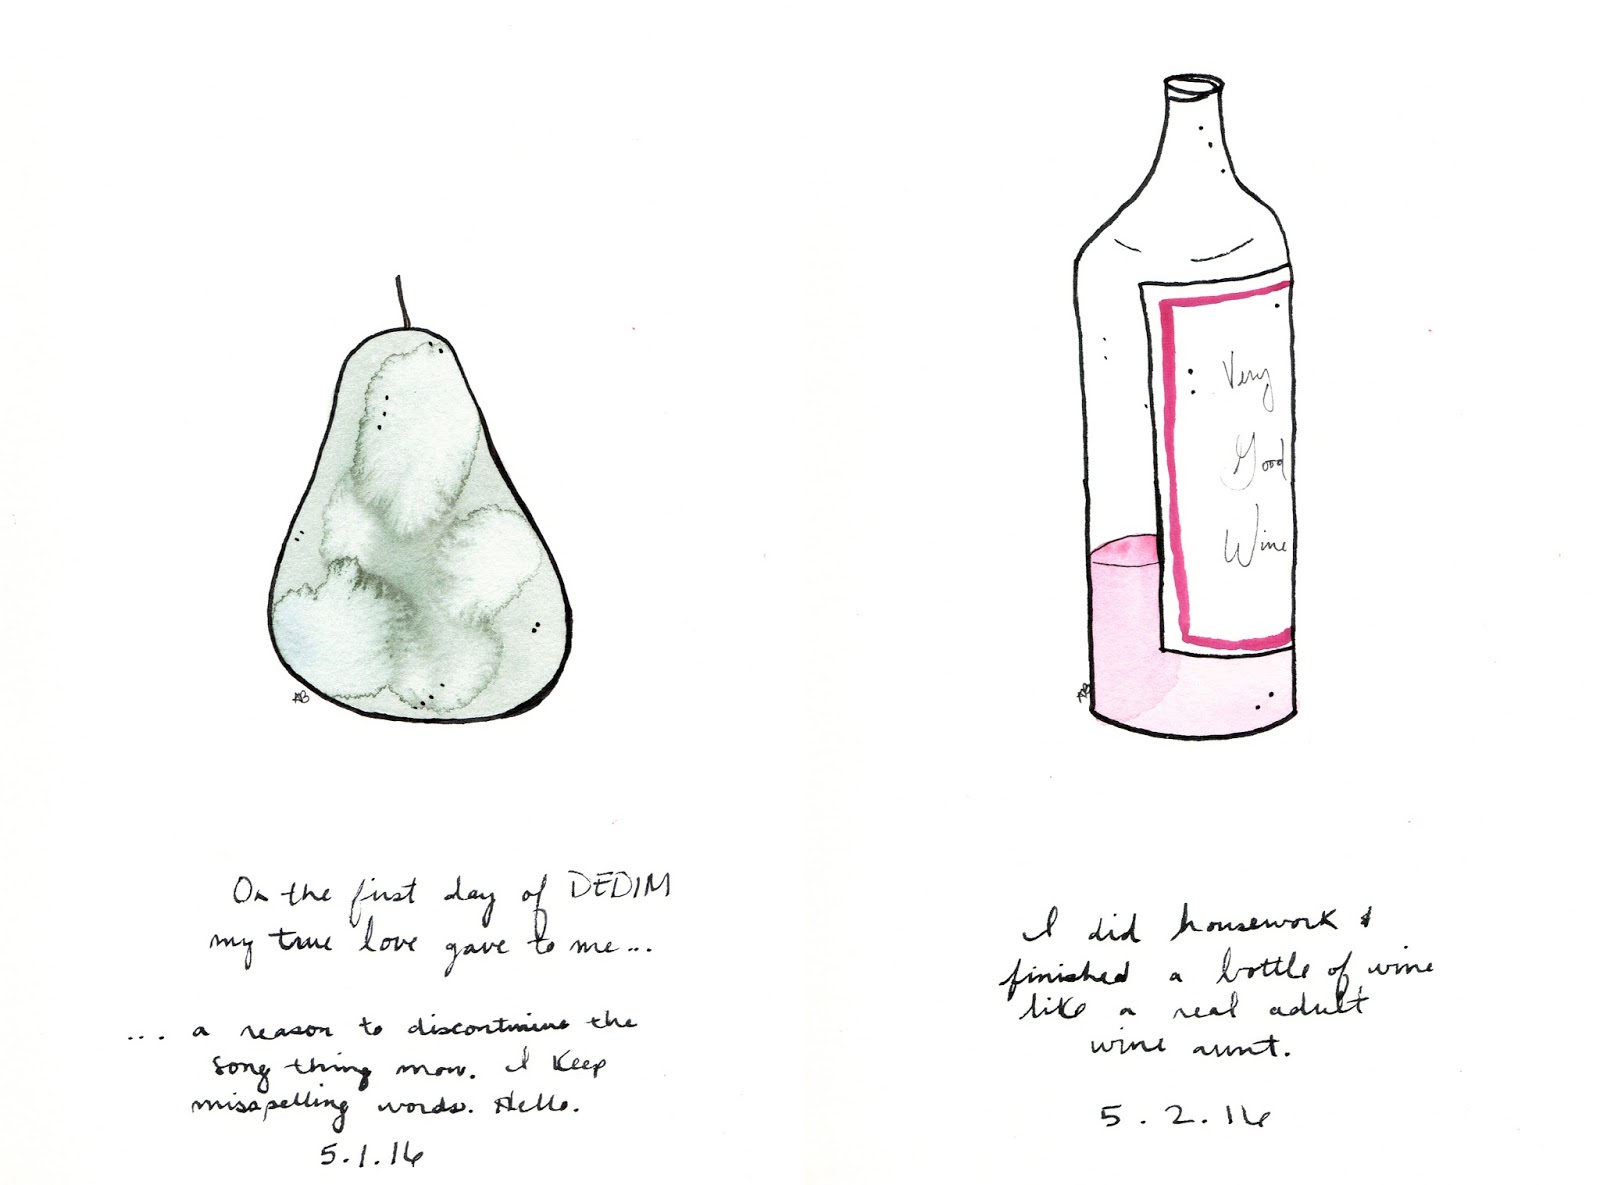 AB
On the first day of DEDIM
my true love gave to me...
... a reason to discontinue the
song thing now. I keep
misspelling words. Hello.
5.1.16
Very
Good
Wine
AB
I did housework &
finished a bottle of wine
like a real adult
wine aunt.
5.2.16